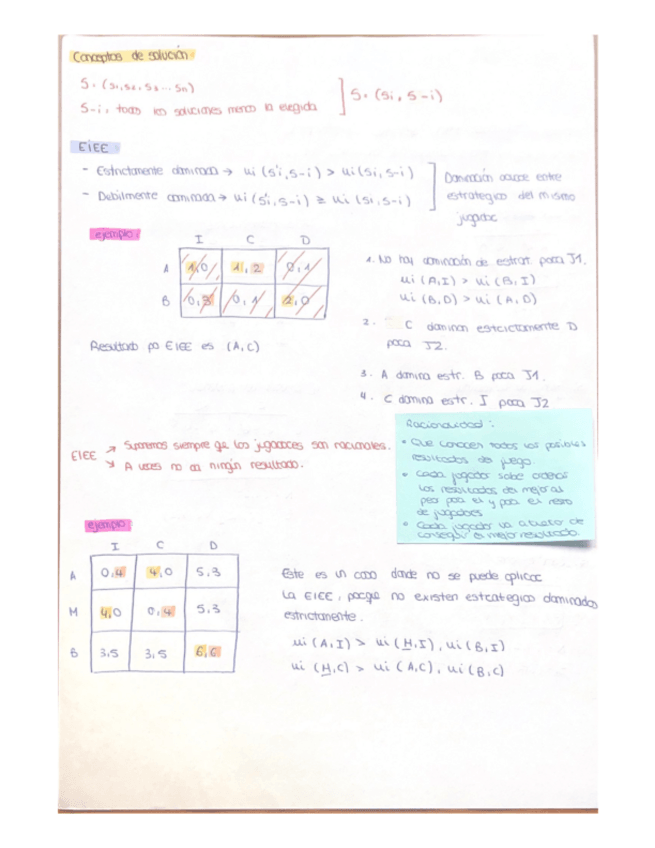 Conceptos de solución:
S = (S1, S2, S3 ... Sn)
S-i, todas las soluciones menos la elegida
S = (Si, S-i)
EIEE:
- Estrictamente dominada → ui (S'i, S-i) > ui (Si, S-i)
- Debilmente dominada → ui (S'i, S-i) ≥ ui (Si, S-i)
Dominación ocurre entre
estrategias del mismo
jugador
ejemplo:
I C D
A 1,0 1,2 0,1
B 0,3 0,1 2,0
Resultado po EIEE es (A,C)
1. No hay dominación de estrat. para J1.
ui (A,I) > ui (B,I)
ui (B,D) > ui (A,D)
2. C dominan estrictamente D
para J2.
3. A domina estr. B para J1.
4. C domina estr. I para J2
EIEE → Suponemos siempre qe los jugadores son racionales.
→ A veces no da ningún resultado.
Racionalidad:
• Que conocen todos los posibles
resultados de juego.
• Cada jugador sabe ordenar
los resultados de mejor a
peor para el y para el resto
de jugadores
• Cada jugador va a tratar de
conseguir el mejor resultado.
ejemplo:
I C D
A 0,4 4,0 5,3
M 4,0 0,4 5,3
B 3,5 3,5 6,6
Este es un caso donde no se puede aplicar
la EIEE, porque no existen estrategias dominadas
estrictamente.
ui (A,I) > ui (M,I), ui (B,I)
ui (M,C) > ui (A,C), ui (B,C)